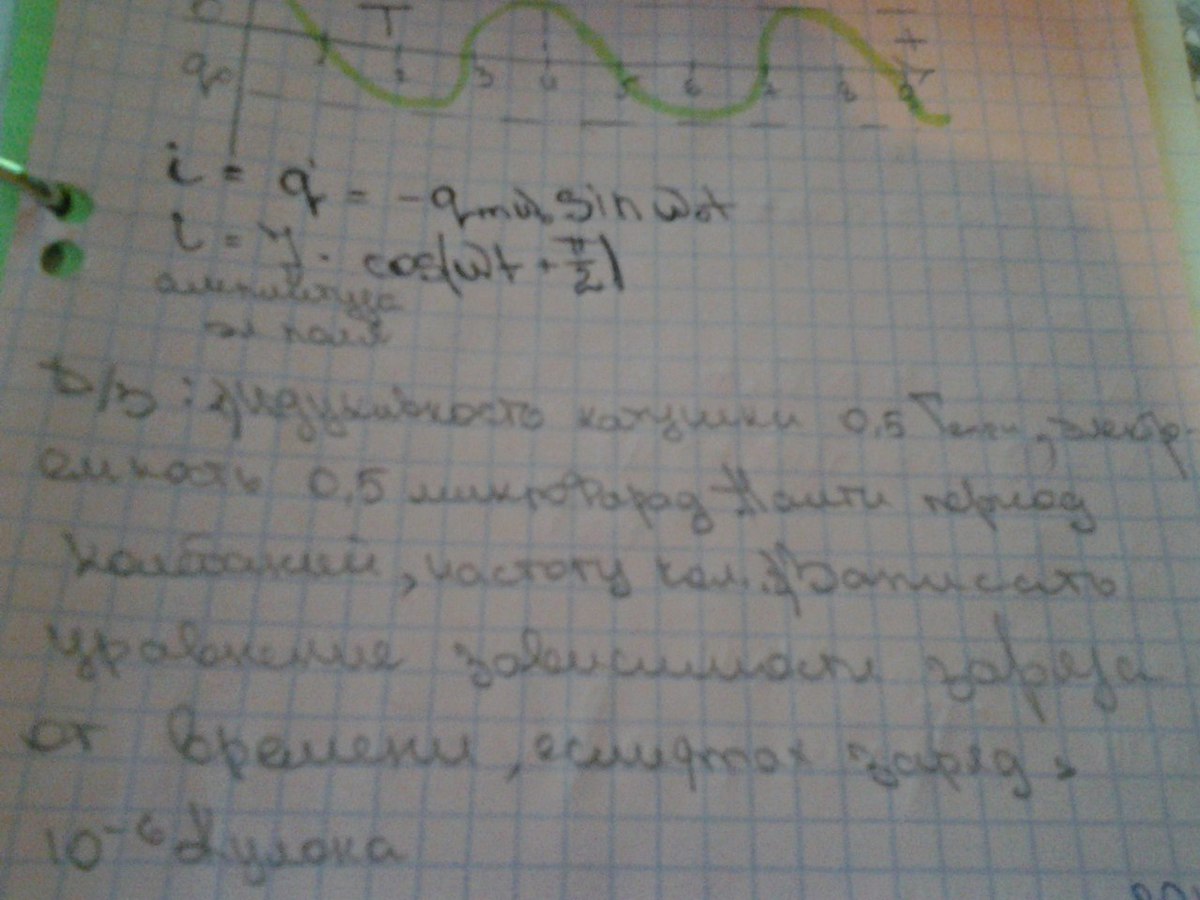 T
t
q₀ 1 2 3 4 5 6 7 8 9
i = q̇ = -qmω₀ sin ω₀t
i = Im · cos(ωt + π/2)
амплитуда
эл поля
D/з: 1) Идуктивность катушки 0.5 Генри, электр-
емкость 0.5 микроФарад Найти период
колбаний, частоту кол. 2) Записать
уравнение зависимости заряда
от времени, если qmax заряд =
10⁻⁶ Кулона